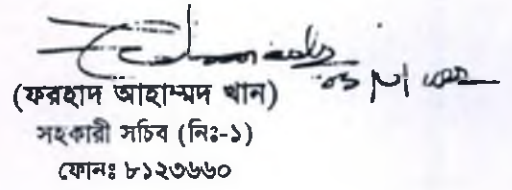 (ফরহাদ আহাম্মদ খান)
সহকারী সচিব (নিঃ-১)
ফোনঃ ৮১২৩৬৬০